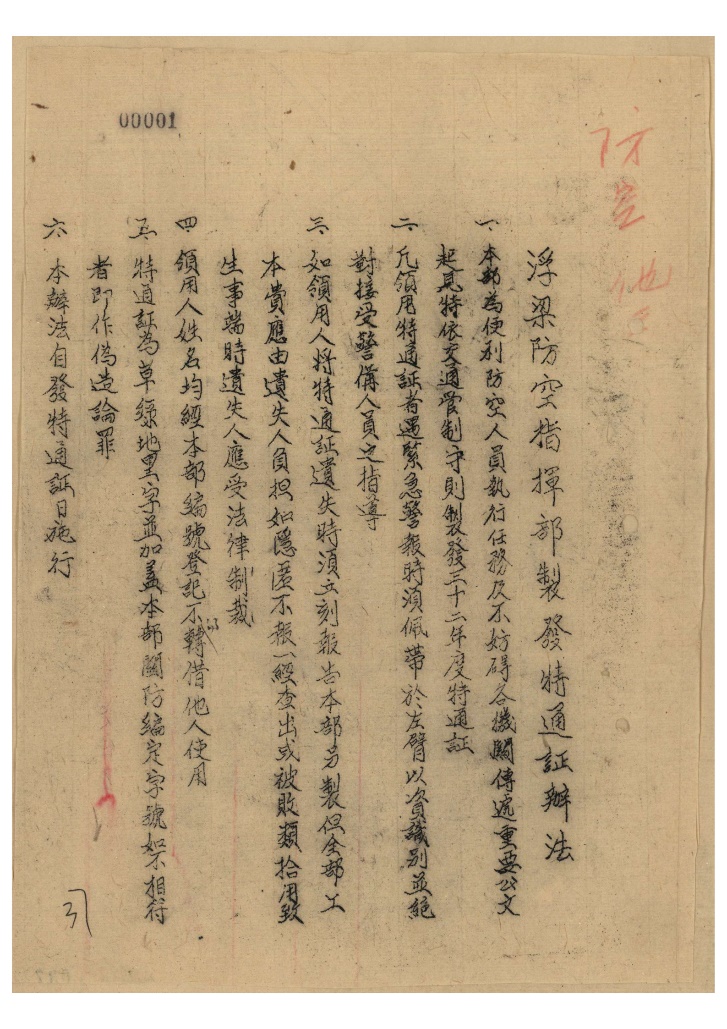 00001
防空
浮梁防空指揮部製發特通証辦法
一、本部為便利防空人員執行任務及不妨碍各機關傳遞重要公文
起見特依交通管制守則製發三十二年度特通証
二、凡領用特通証者遇緊急警報時須佩帶於左臂以資識別並絕
對接受警備人員之指導
三、如領用人將特通証遺失時須立刻報告本部另製但全部工
本費應由遺失人負担如隱匿不報一經查出或被敗類拾用致
生事端時遺失人應受法律制裁
四、領用人姓名均經本部編號登記不得轉借他人使用
五、特通証為草綠地黑字並加蓋本部關防編定字號如不相符
者即作偽造論罪
六、本辦法自發特通証日施行